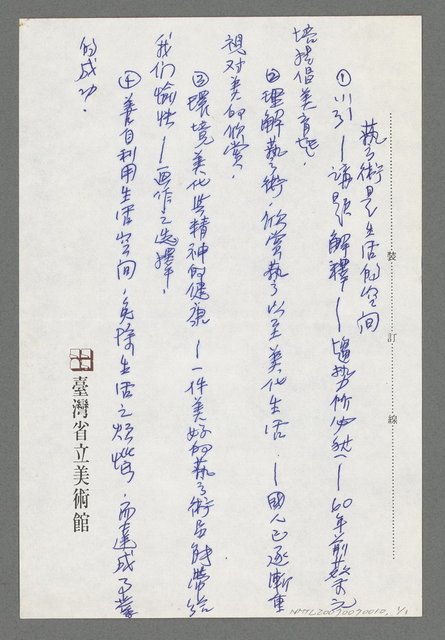 藝術是生活的空間
①小引－講題解釋－趨勢所必然－60年前蔡元
培揚倡美育也.
②理解藝術.欣賞藝術以至美化生活.－國人已逐漸重
視对美的欣赏.
③環境美化與精神的健康－一件美好的藝術品能帶給
我们愉快－画作之选擇.
④善自利用生活空间.免除生活之烦惱.而達成事業
的成功.
裝
訂
線
臺灣省立美術館
NMTL20090090010, 1/1